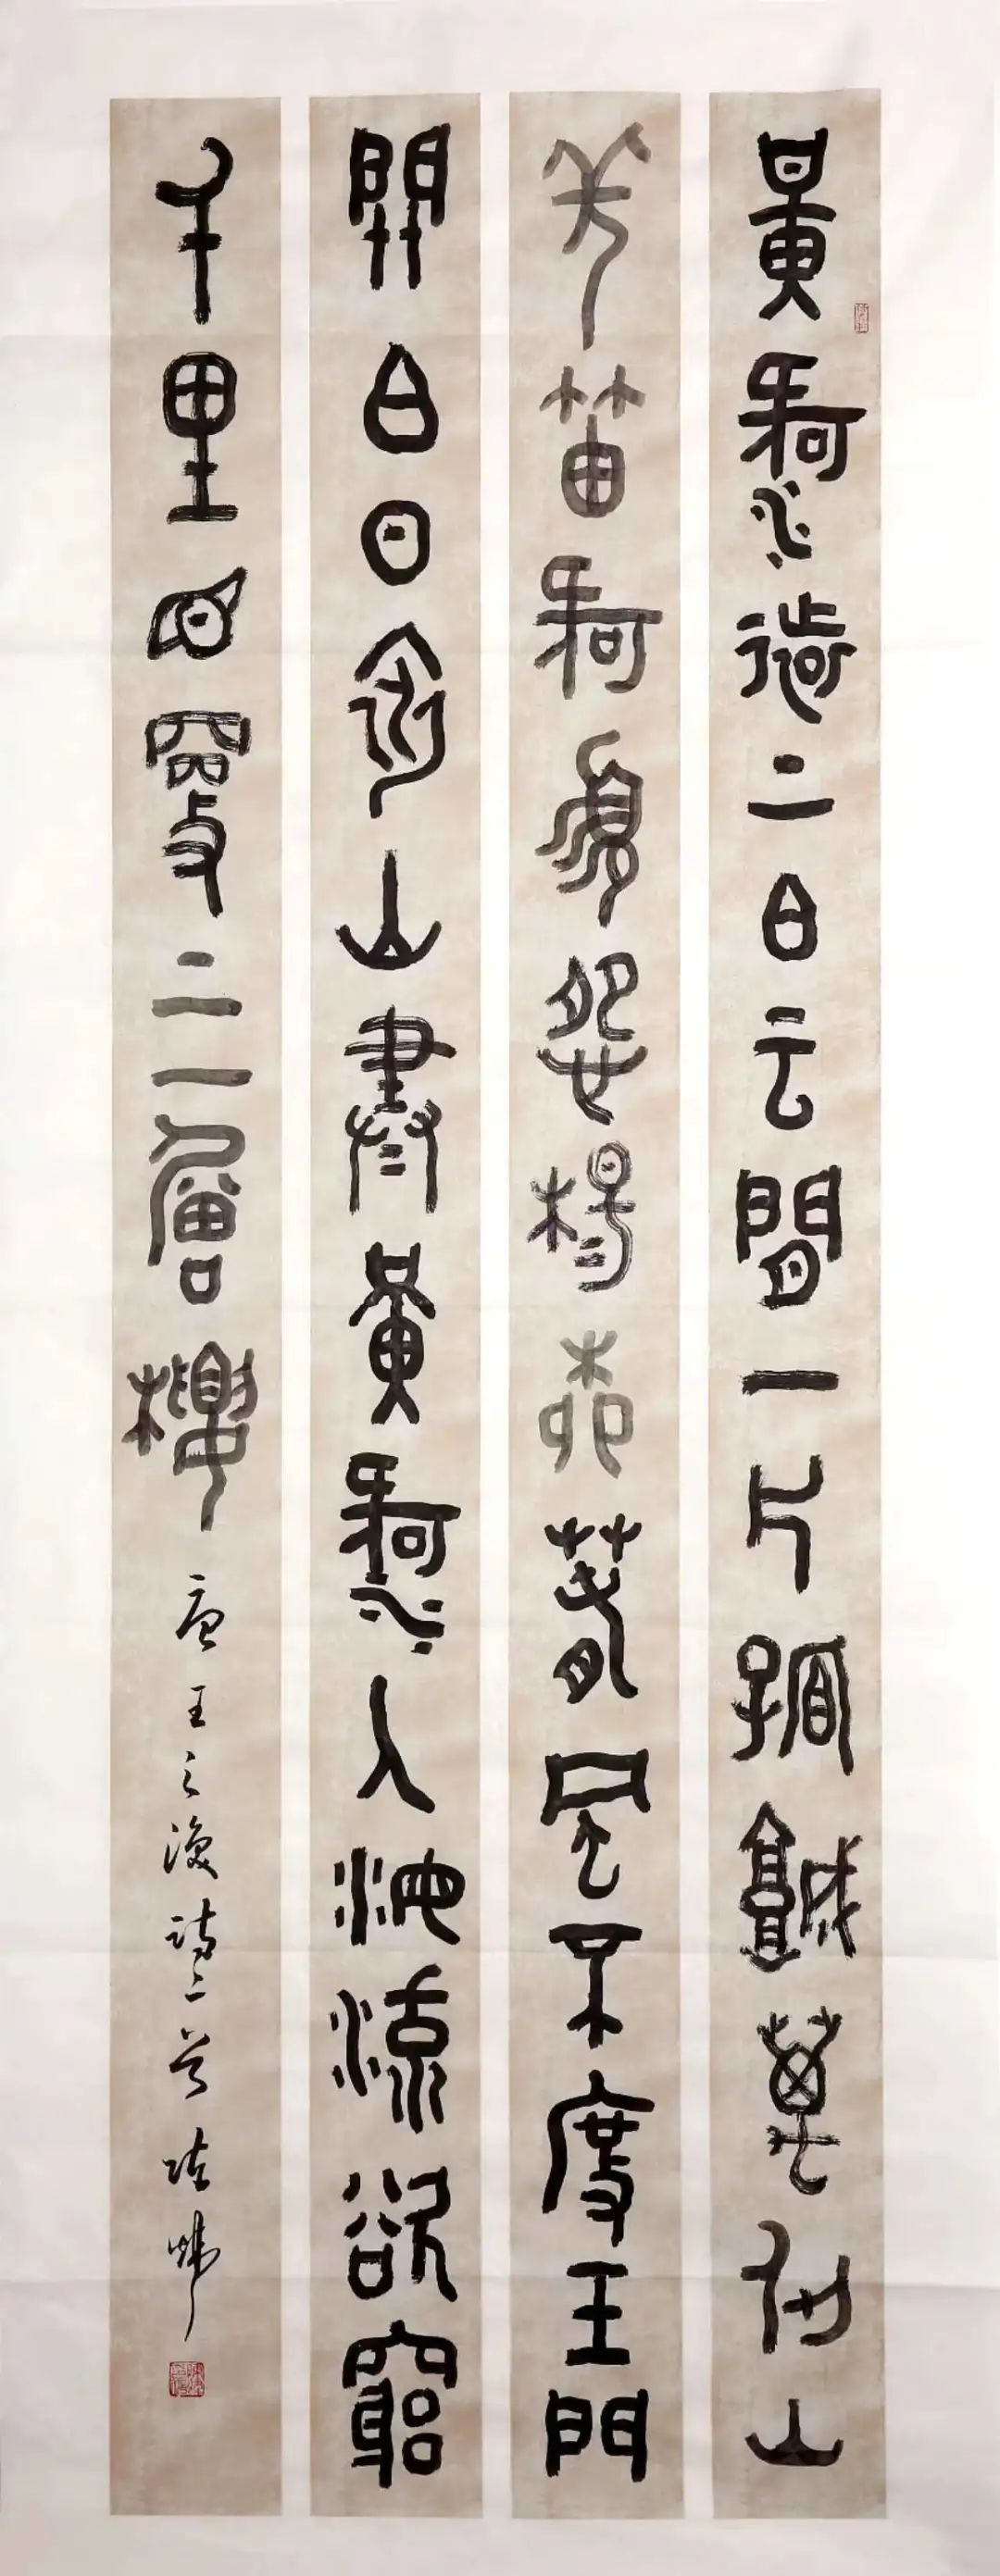 黃河遠上白云間一片孤城萬仞山
羌笛何須怨楊柳春風不度玉門
關白日依山盡黃河入海流欲窮
千里目更上一層樓 唐王之渙詩二首